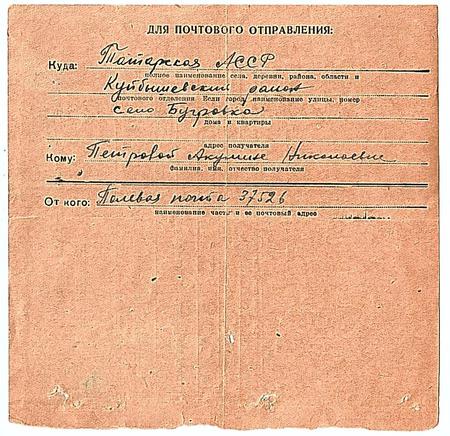 ДЛЯ ПОЧТОВОГО ОТПРАВЛЕНИЯ:
Куда: Татарская АССР
полное наименование села, деревни, района, области и
Куйбышевский район
почтового отделения. Если город, наименование улицы, номер
село Бугровка
дома и квартиры
адрес получателя
Кому: Петровой Акулине Николаевне
фамилия, имя, отчество получателя
От кого: Полевая почта 37526
наименование части и ее почтовый адрес